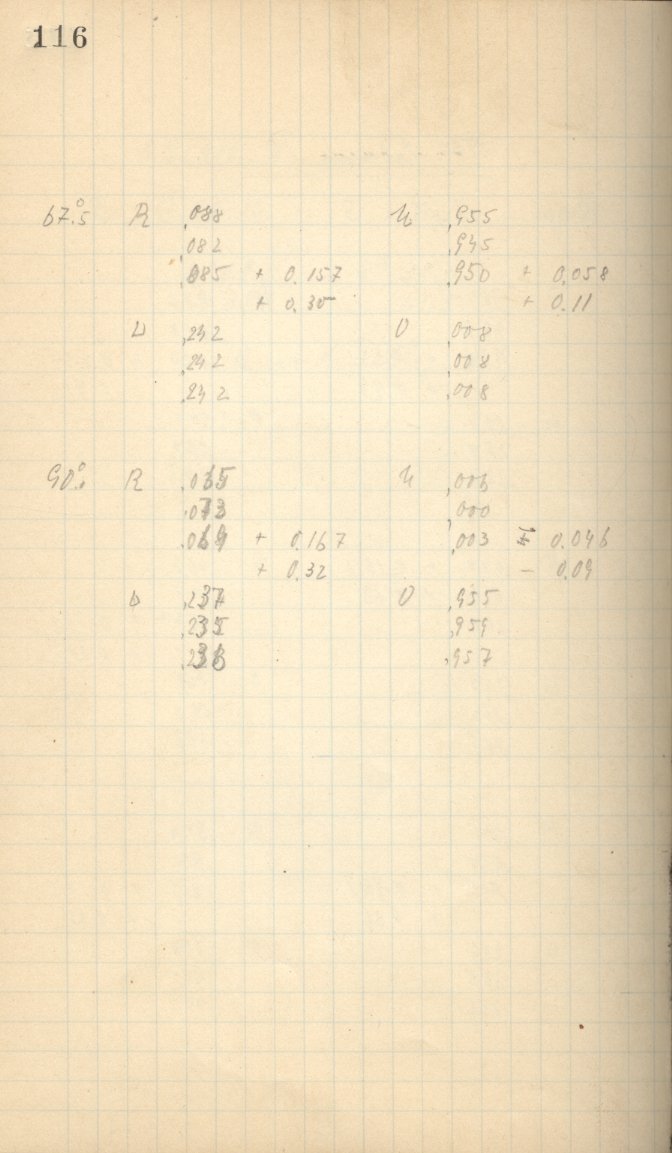 116
67°.5 R ,088 U ,955
,082 ,945
,085 + 0.157 ,950 + 0.058
+ 0.30 + 0.11
D ,242 O ,008
,242 ,008
,242 ,008
90°. R .065 U ,006
.073 ,000
.069 + 0.167 ,003 - 0.046
+ 0.32 - 0.09
D ,237 O ,955
,235 ,959
,236 ,957